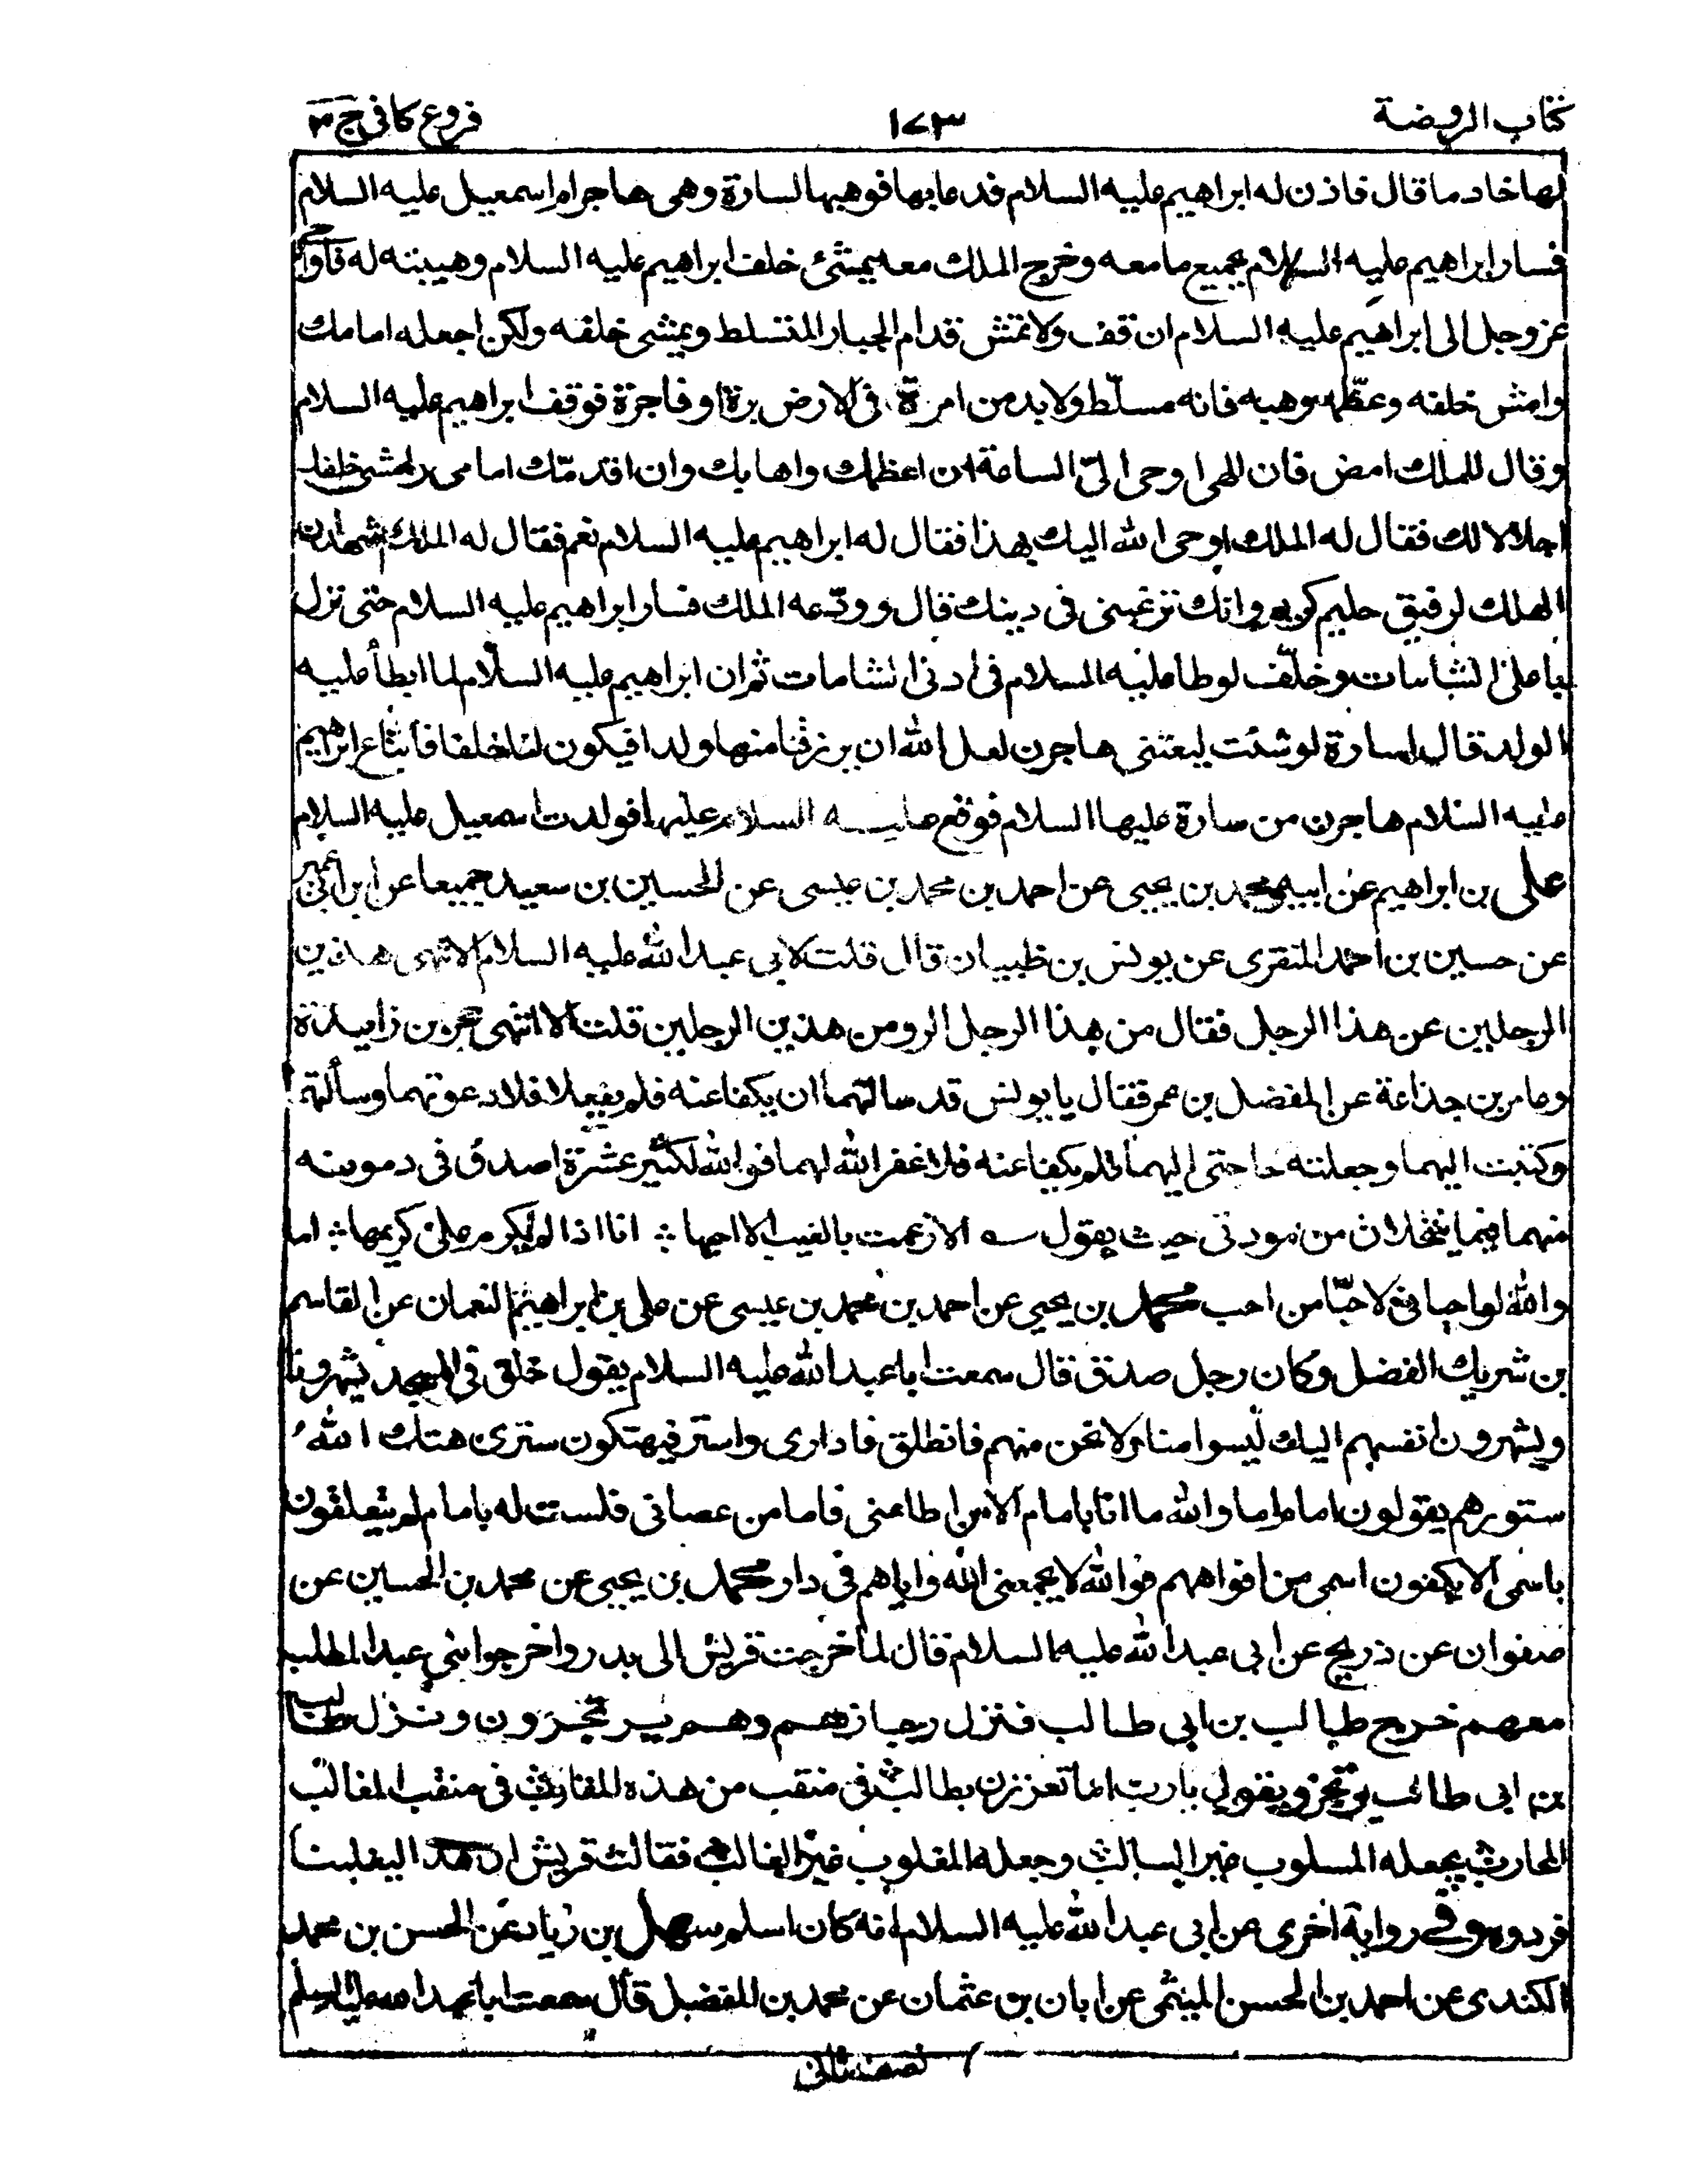 كتاب الروضة
١٧٣
فروع كافى ج ٣
لها خادما قال فاذن له ابراهيم عليه السلام فدعا بها فوهبها لسارة وهى هاجر ام اسمعيل عليه السلام
فسار ابراهيم عليه السلام بجميع ما معه وخرج الملك معه يمشى خلف ابراهيم عليه السلام وهيبته له فاوحى
عز وجل الى ابراهيم عليه السلام ان قف ولا تمش قدام الجبار المتسلط ويمشى خلفه ولكن اجعله امامك
وامش خلفه وعظمه وهبه فانه مسلّط ولا بد من امرة فى الارض برة او فاجرة فوقف ابراهيم عليه السلام
وقال للملك امض فان الهى اوحى الىّ الساعة ان اعظمك واهابك وان اقدمّك امامى وامشى خلفك
اجلالا لك فقال له الملك اوحى الله اليك بهذا فقال له ابراهيم عليه السلام نعم فقال له الملك اشهد ان
الهك لرفيق حليم كريم وانك ترغبنى فى دينك قال وودّعه الملك فسار ابراهيم عليه السلام حتى نزل
باعلى الشامات وخلّف لوطا عليه السلام فى ادنى الشامات ثم ان ابراهيم عليه السلام لما ابطأ عليه
الولد قال لسارة لو شئت لبعتنى هاجر لعل الله ان يرزقنا منها ولدا فيكون لنا خلفا فابتاع ابراهيم
عليه السلام هاجر من سارة عليها السلام فوقع عليه السلام عليها فولدت اسمعيل عليه السلام
على بن ابراهيم عن ابيه ومحمد بن يحيى عن احمد بن محمد بن عيسى عن الحسين بن سعيد جميعا عن ابن ابى عمير
عن حسين بن احمد المنقرى عن يونس بن ظبيان قال قلت لابى عبد الله عليه السلام الا تنهى هذين
الرجلين عن هذا الرجل فقال من هذا الرجل الرو من هذين الرجلين قلت الا تنهى حجر بن زايدة
وعامر بن جذاعة عن المفضل بن عمر فقال يا يونس قد سالتهما ان يكفا عنه فلم يفعلا فلا دعوتهما وسألتهما
وكتبت اليهما وجعلته حاجتى اليهما فلم يكفا عنه فلا غفر الله لهما فوالله لكثير عشرة اصدق فى دمو مته
منهما فيما ينتحلان من مودتى حيث يقول الا زعمت بالغيب الا احبها ؞ انا اذا لم يكرم على كريمها ؞ اما
والله لو احبانى لاحبّا من احب محمد بن يحيى عن احمد بن محمد بن عيسى عن على بن ابراهيم النعمان عن القاسم
بن شريك الفضل وكان رجل صدق قال سمعت ابا عبد الله عليه السلام يقول خلق فى المسجد يشهرونا
ويشهرون انفسهم اليك ليسوا منا ولا نحن منهم فانطلق فادارى واستر فيهتكون سترى هتك الله
ستورهم يقولون امام اما والله ما انا بامام الا من اطاعنى فاما من عصانى فلست له بامام لم يتعلقون
باسمى الا يكفون اسمى من افواههم فوالله لا يجمعنى الله واياهم فى دار محمد بن يحيى عن محمد بن الحسين عن
صفوان عن ذريح عن ابى عبد الله عليه السلام قال لما خرجت قريش الى بدر واخرجوا بنى عبد المطلب
معهم خرج طالب بن ابى طالب فنزل رجازهم وهم يرتجزون ونزل طالب
بن ابى طالب يرتجز ويقول يا رب اما تعززن بطالب فى منقب من هذه المقانب فى منقب المغالب
المحارب بجعله المسلوب غير السالب وجعله المغلوب غير الغالب فقالت قريش ان هذا ليغلبنا
فردوه وفى رواية اخرى عن ابى عبد الله عليه السلام انه كان اسلم سهل بن زياد عن الحسن بن محمد
الكندى عن احمد بن الحسن الميثمى عن ابان بن عثمان عن محمد بن المفضل قال سمعت ابا عبد الله عليه السلم
نصف ثانى